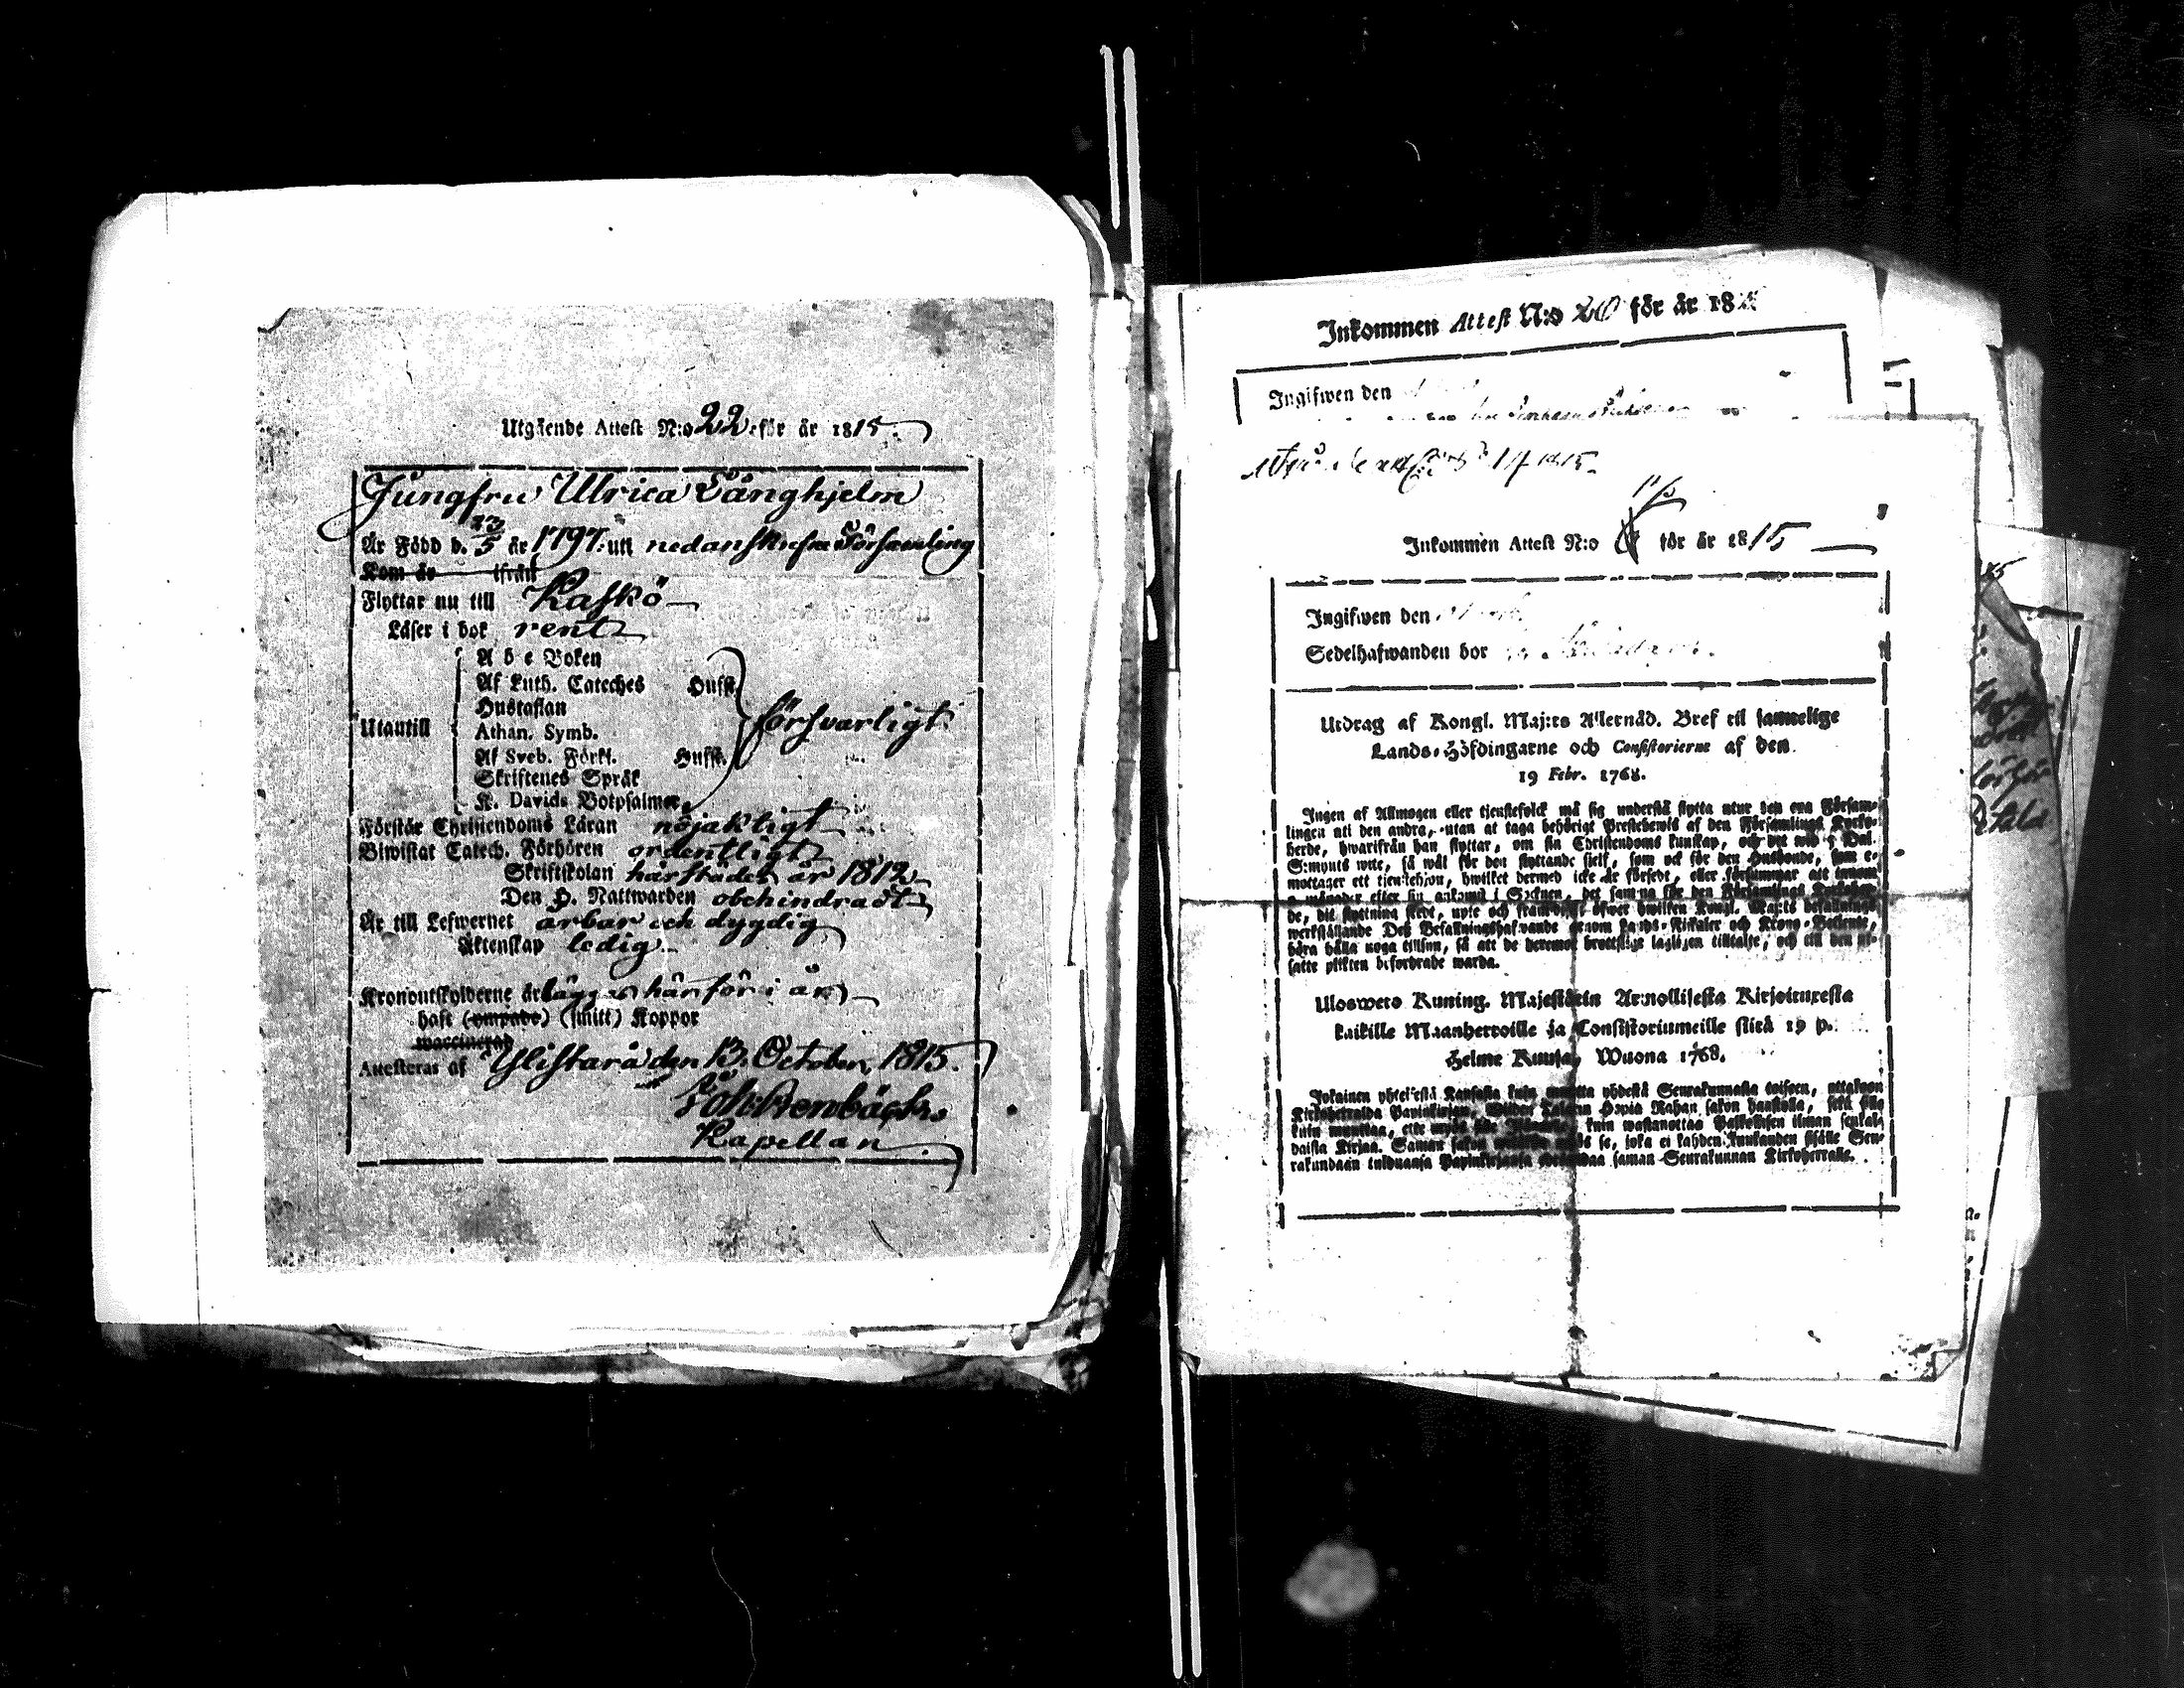 Utgående Attest N:o 22. för år 1815.
Jungfru Ulrica Långhjelm
Är Född d. 23/5 år 1797. uti nedanskrefne Församling
Kom år ifrån
Flyttar nu till Kaskö
Läser i bok rent
Utantill
A b c Boken
Af Luth. Cateches Husft.
Hustaflan
Athan. Symb.
Af Sveb. Förkl. Husft.
Skriftenes Språk
K. Davids Botpsalmer
försvarligt
Förstår Christendoms Läran nöjaktigt
Biwistat Catech. Förhören ordentligt
Skriftskolan härstädes år 1812
Den H. Nattwarden obehindradt
Är till Lefwernet ärbar och dygdig
Äktenskap ledig
Kronoutskylderne är lägges här för i år
haft (ympade) (smitt) Koppor
waccinerad
Attesteras af Ylistaro den 13. October, 1815.
Joh. Aronbäck.
Kapellan.
Inkommen Attest N:o 20 för år 18
Ingifwen den
1815.
Inkommen Attest N:o för år 1815
Ingifwen den
Sedelhafwanden bor
Utdrag af Kongl. Maj:ts Allernåd. Bref til samtelige
Lands-Höfdingarne och Consistorierne af den
19 Febr. 1768.
Ingen af Allmogen eller tjenstefolck må sig understå flytta utur den ena Försam-
lingen uti den andra, utan at taga behörigt Prestebewis af den Församlings Kyrko-
herde, hwarifrån han flyttar, om sin Christendoms kunskap, och det wid 5 Dal.
S:mynts wite, så wäl för den flyttande sielf, som ock för den Husbonde, som e-
mottager ett tjenstehion, hwilket dermed icke är försedt, eller försummar att innom
månader efter sin ankomst i Socknen, det samma för den Församlings Kyrkoher-
de, dit flyttning skedt, upte och framwisa; öfwer hwilken Kongl. Maj:ts befallnings
werkställande Des Befallningshafwande genom Lands-Fiskaler och Krono-Betiente,
böra hålla noga tillsyn, så att de deremot brottslige lagligen tilltalte, och till den ut-
satte plikten befordrade warda.
Uloswetο Kuning. Majestätin Armollisesta Kirjoituxesta
kaikille Maanherroille ja Consistoriumeille siitä 19 p.
Helme Kuusa, Wuona 1768.
Jokainen yhteisestä Kansasta kuin muutta yhdestä Seurakunnasta toiseen, ottakoon
Kirkoherralda Papinkirjan, Wijden Talarin Hopia Rahan sakon haastolla, sekä
kuin muuttaa, ette kuin wastanottaa Palkollisen ilman senkal-
daista Kirjaa. Saman sakon se, joka ei kahden kuukauden sisälle Seu-
rakundaan tulduansa Papinkirjansa saman Seurakunnan Kirkoherralle.